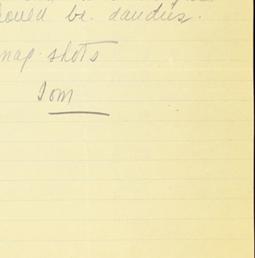 ould be. dandies.
nap-shots
Tom